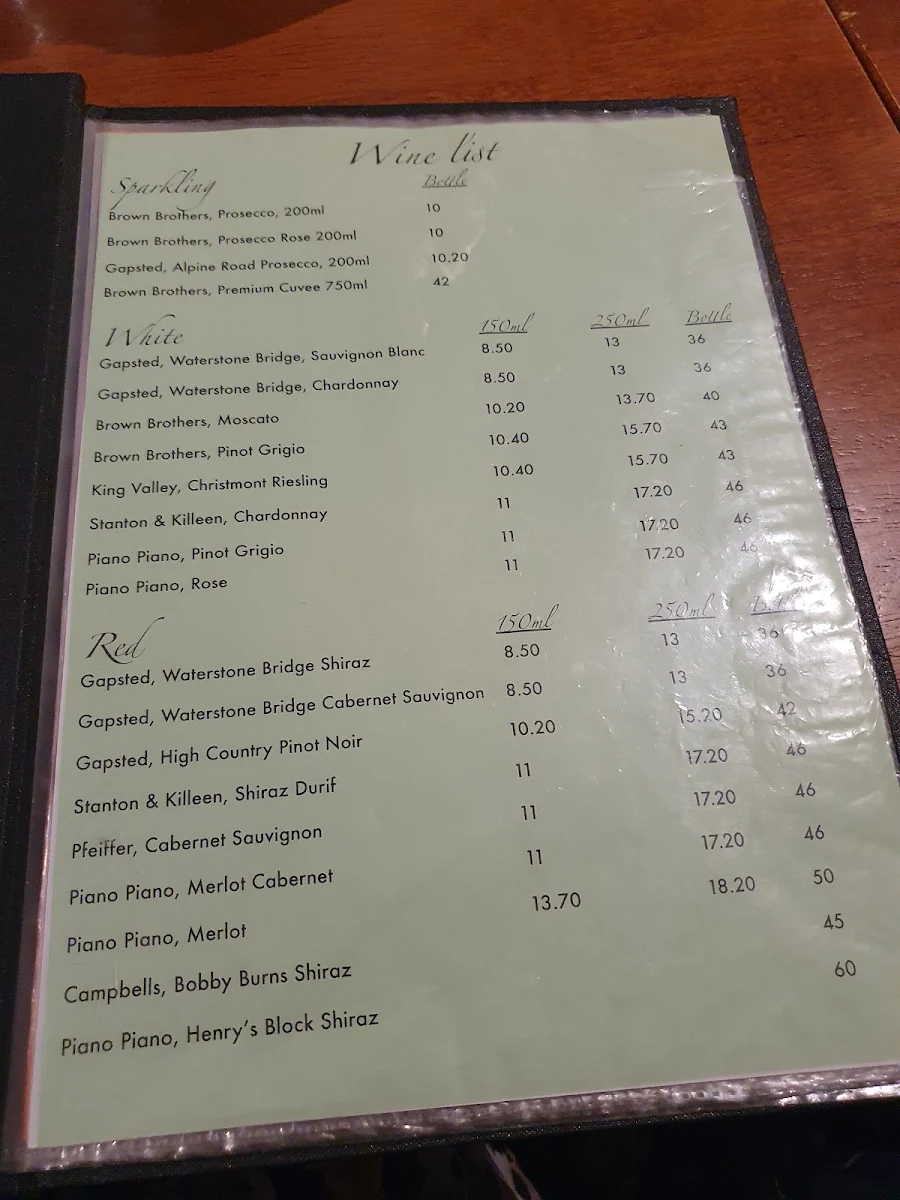 Wine list
Sparkling Bottle
Brown Brothers, Prosecco, 200ml 10
Brown Brothers, Prosecco Rose 200ml 10
Gapsted, Alpine Road Prosecco, 200ml 10.20
Brown Brothers, Premium Cuvee 750ml 42
White 150ml 250ml Bottle
Gapsted, Waterstone Bridge, Sauvignon Blanc 8.50 13 36
Gapsted, Waterstone Bridge, Chardonnay 8.50 13 36
Brown Brothers, Moscato 10.20 13.70 40
Brown Brothers, Pinot Grigio 10.40 15.70 43
King Valley, Christmont Riesling 10.40 15.70 43
Stanton & Killeen, Chardonnay 11 17.20 46
Piano Piano, Pinot Grigio 11 17.20 46
Piano Piano, Rose 11 17.20 46
Red 150ml 250ml Bottle
Gapsted, Waterstone Bridge Shiraz 8.50 13 36
Gapsted, Waterstone Bridge Cabernet Sauvignon 8.50 13 36
Gapsted, High Country Pinot Noir 10.20 15.20 42
Stanton & Killeen, Shiraz Durif 11 17.20 46
Pfeiffer, Cabernet Sauvignon 11 17.20 46
Piano Piano, Merlot Cabernet 11 17.20 46
Piano Piano, Merlot 13.70 18.20 50
Campbells, Bobby Burns Shiraz 45
Piano Piano, Henry's Block Shiraz 60